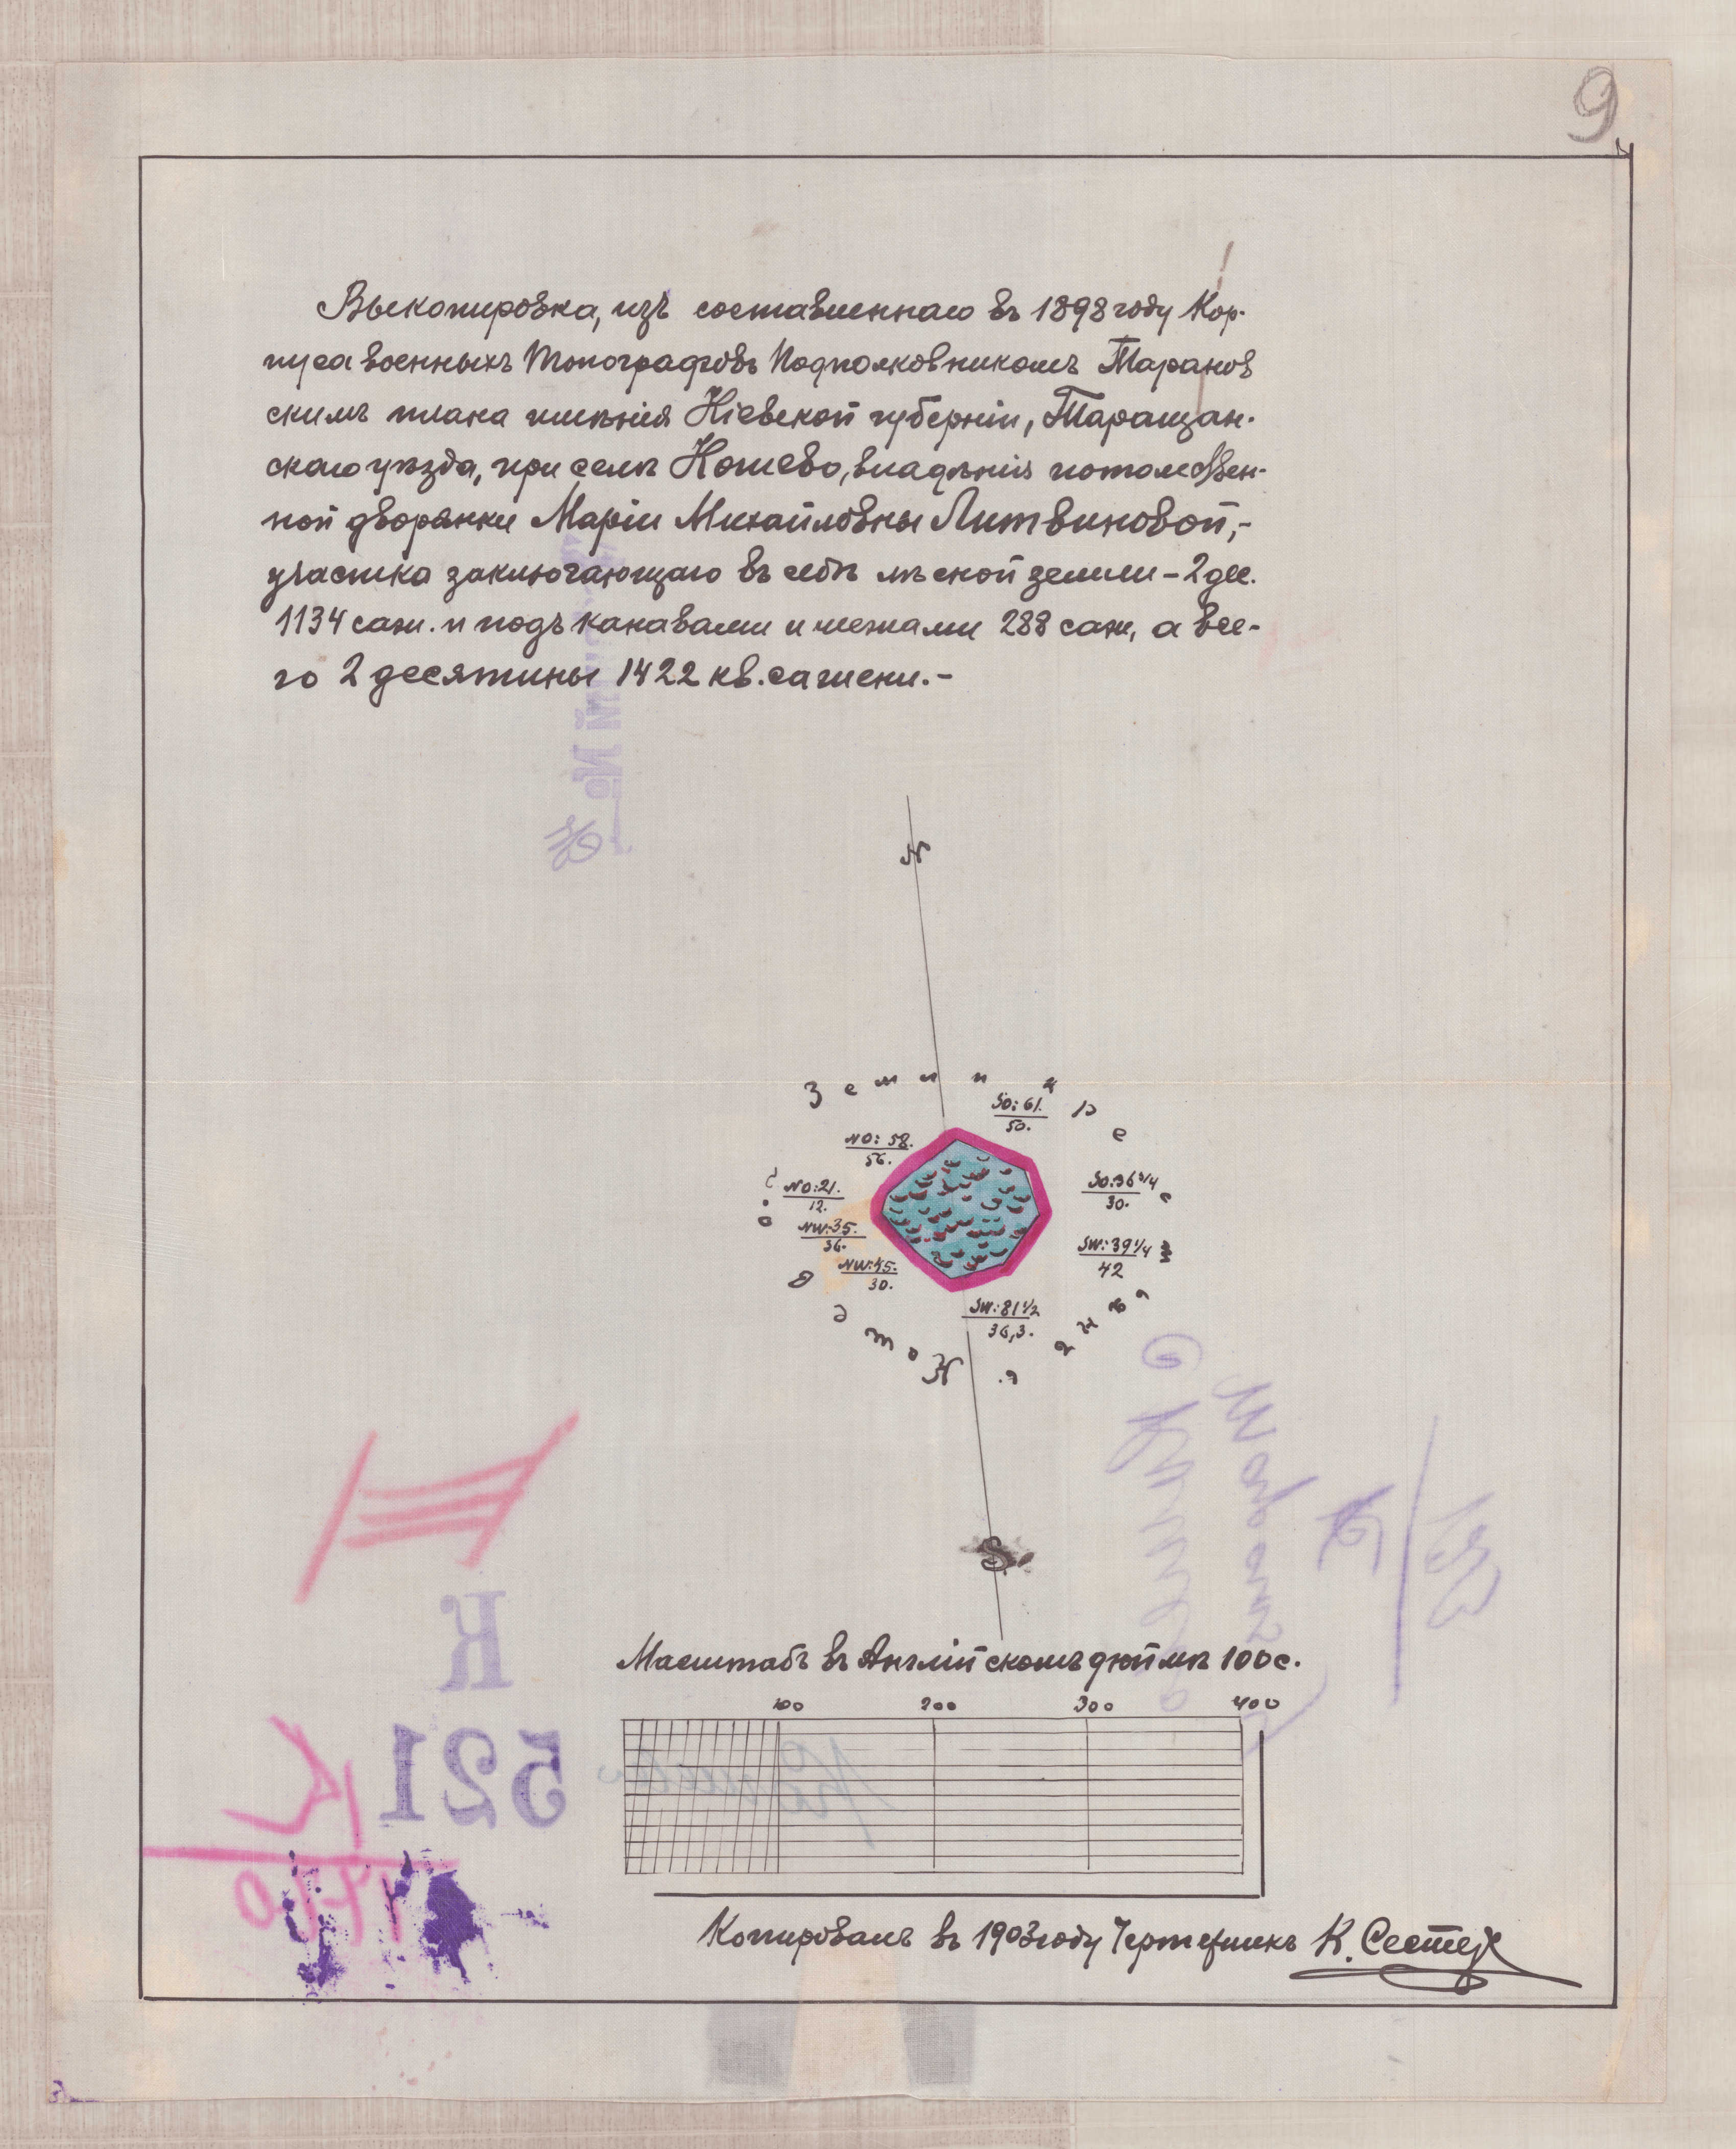 9
Выкопировка, изъ составленнаго въ 1898 году Кор-
пуса военныхъ Топографовъ Подполковникомъ Таранов
скимъ плана имѣнія Кіевской губерніи, Таращан-
скаго уѣзда, при селѣ Кошево, владѣнія потомствен-
ной дворянки Маріи Михайловны Литвиновой,-
участка заключающаго въ себѣ лѣсной земли - 2 дес.
1134 саж. и подъ канавами и межами 288 саж, а все-
го 2 десятины 1422 кв. сажени.-
N
Земли крестьянъ
с. Кошева
SO: 61.
50.
NO: 58.
56.
NO: 21.
12.
SO: 36 3/4
30.
NW: 35.
36.
SW: 39 1/4
42
NW: 45.
30.
SW: 81 1/2
36,3.
S.
Масштабъ въ Англійскомъ дюймѣ 100 с.
100 200 300 400
К
521
Копировалъ въ 1903 году Чертежникъ К.